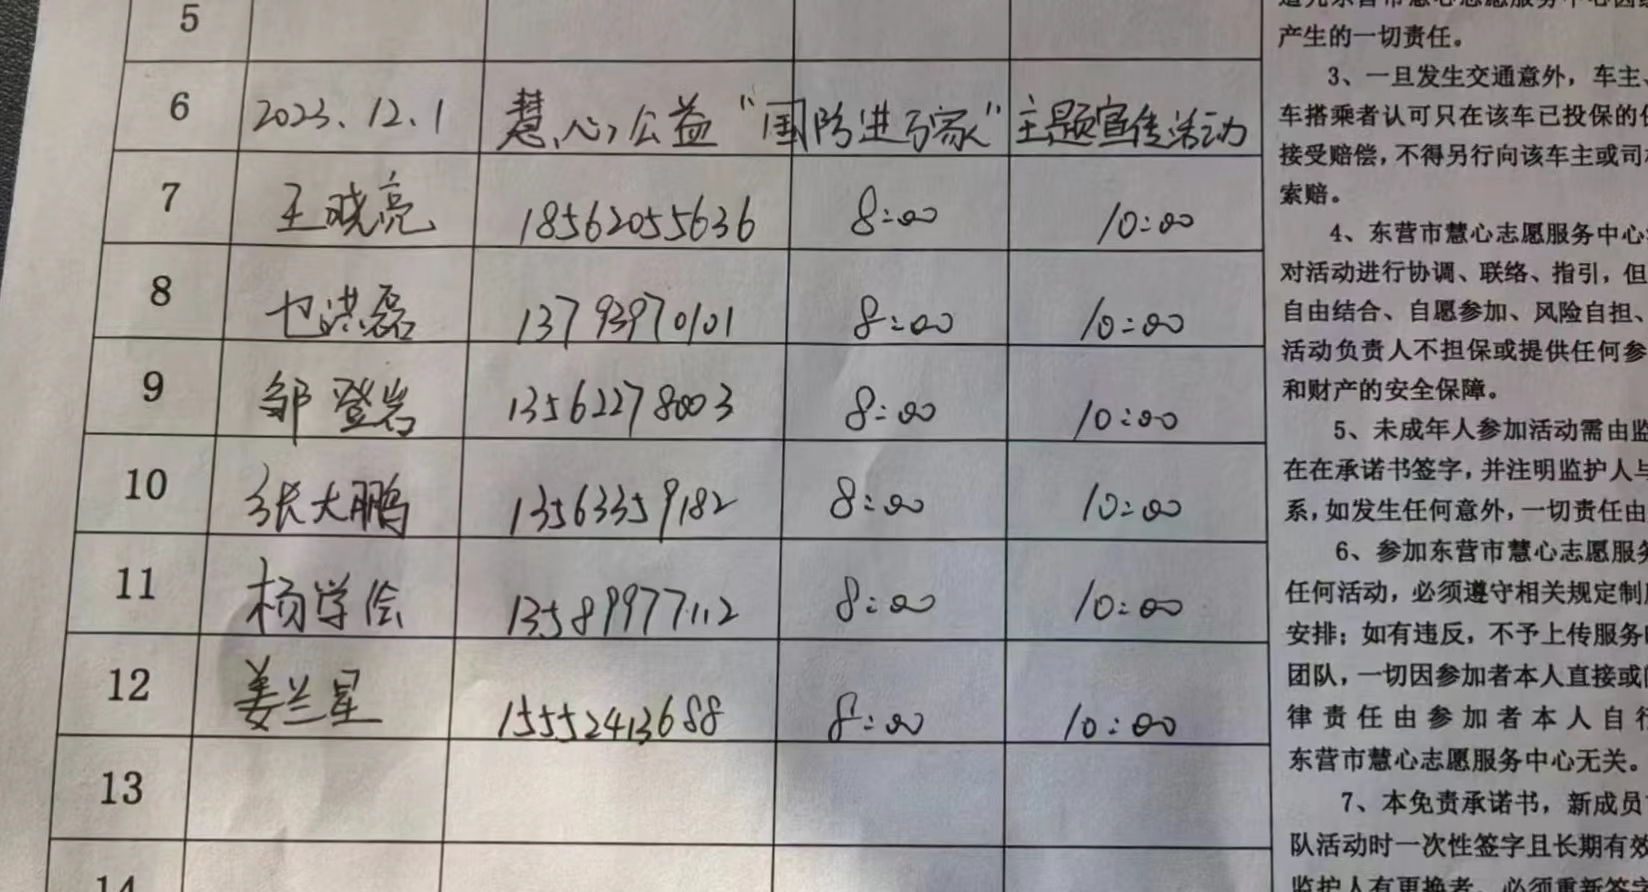 5
6 2023.12.1 慧心公益“国防进万家”主题宣传活动
7 王晓亮 18562055636 8:00 10:00
8 也洪磊 13793970101 8:00 10:00
9 邹登岩 13562278003 8:00 10:00
10 张大鹏 13563359182 8:00 10:00
11 杨学会 13589977112 8:00 10:00
12 姜兰星 15552413688 8:00 10:00
13
14
产生的一切责任。
3、一旦发生交通意外，车主、
车搭乘者认可只在该车已投保的
接受赔偿，不得另行向该车主或司
索赔。
4、东营市慧心志愿服务中心
对活动进行协调、联络、指引，但
自由结合、自愿参加、风险自担、
活动负责人不担保或提供任何参
和财产的安全保障。
5、未成年人参加活动需由监
在在承诺书签字，并注明监护人与
系，如发生任何意外，一切责任由
6、参加东营市慧心志愿服务
任何活动，必须遵守相关规定制
安排；如有违反，不予上传服务
团队，一切因参加者本人直接或
律责任由参加者本人自行
东营市慧心志愿服务中心无关。
7、本免责承诺书，新成员
队活动时一次性签字且长期有效
监护人有更换者，必须重新签字